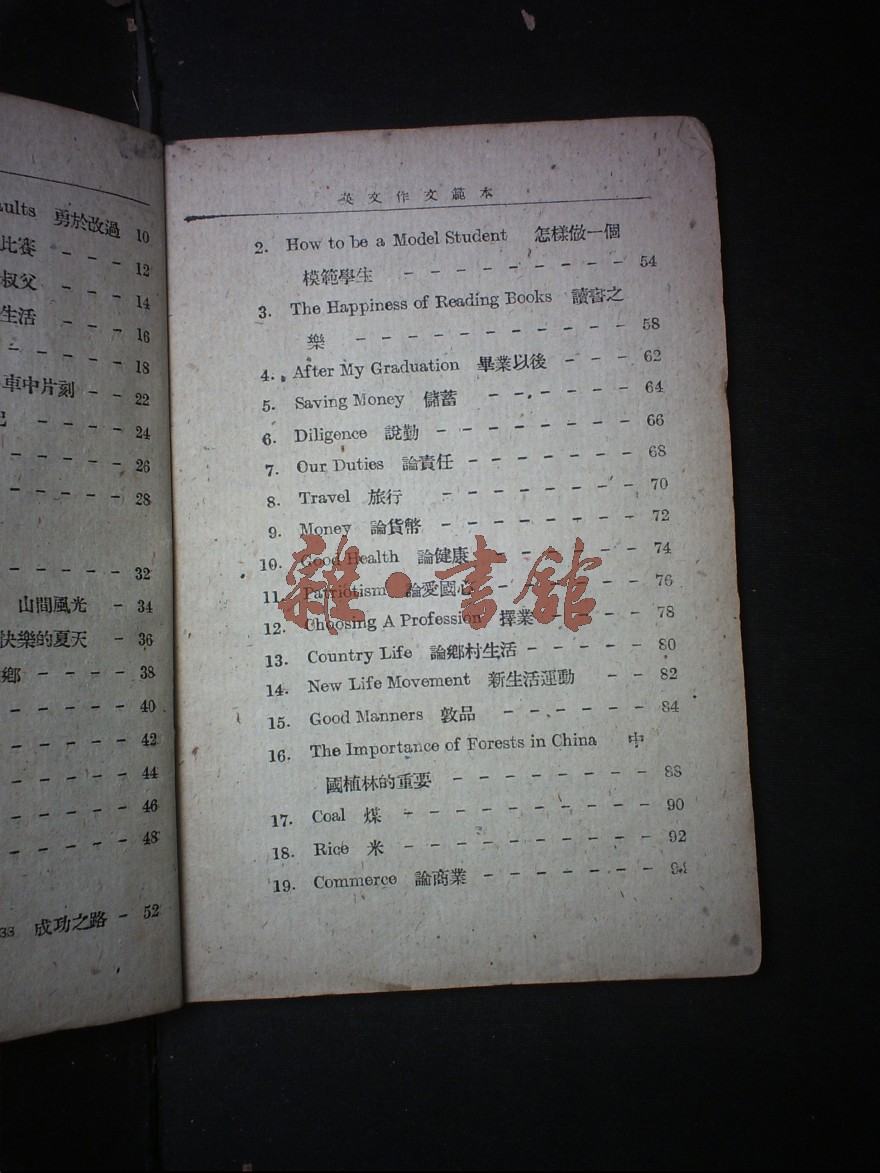 ults 勇於改過 10
比賽 - - - 12
叔父 - - - 14
生活 - - - 16
- - - - - 18
車中片刻 - - 22
記 - - - - 24
- - - - 26
- - - - - 28
- - - - - 32
山間風光 - 34
快樂的夏天 - 36
鄉 - - - - 38
- - - - - 40
- - - - - 42
- - - - - 44
- - - - - 46
- - - - - 48
成功之路 - 52
英文作文範本
2. How to be a Model Student 怎樣做一個
模範學生 - - - - - - - - - - 54
3. The Happiness of Reading Books 讀書之
樂 - - - - - - - - - - - 58
4. After My Graduation 畢業以後 - - - - 62
5. Saving Money 儲蓄 - - - - - - 64
6. Diligence 說勤 - - - - - - - - 66
7. Our Duties 論責任 - - - - - - - 68
8. Travel 旅行 - - - - - - - - 70
9. Money 論貨幣 - - - - - - - - 72
10. Good Health 論健康 - - - - - - 74
11. Patriotism 論愛國心 - - - - - - 76
12. Choosing A Profession 擇業 - - - - 78
13. Country Life 論鄉村生活 - - - - - 80
14. New Life Movement 新生活運動 - - 82
15. Good Manners 敦品 - - - - - - 84
16. The Importance of Forests in China 中
國植林的重要 - - - - - - - - 88
17. Coal 煤 - - - - - - - - - 90
18. Rice 米 - - - - - - - - - 92
19. Commerce 論商業 - - - - - - -
雜·書館